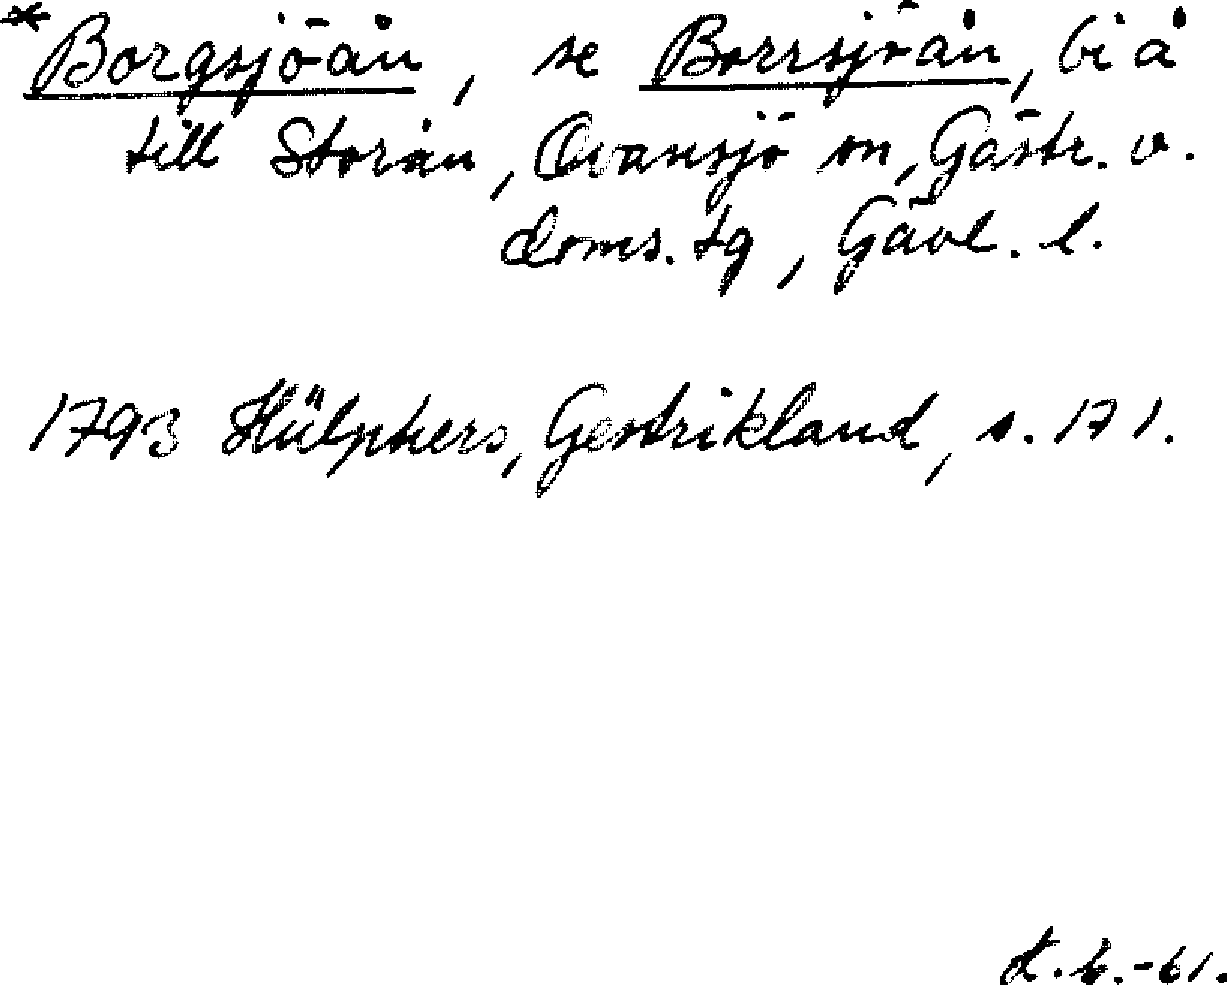 *Borgsjöån, se Borrsjöån, biå
till Storån, Ovansjö sn, Gästr. v.
doms. tg, Gävl. l.
1793 Hülphers, Gestrikland, s. 171.
-61.